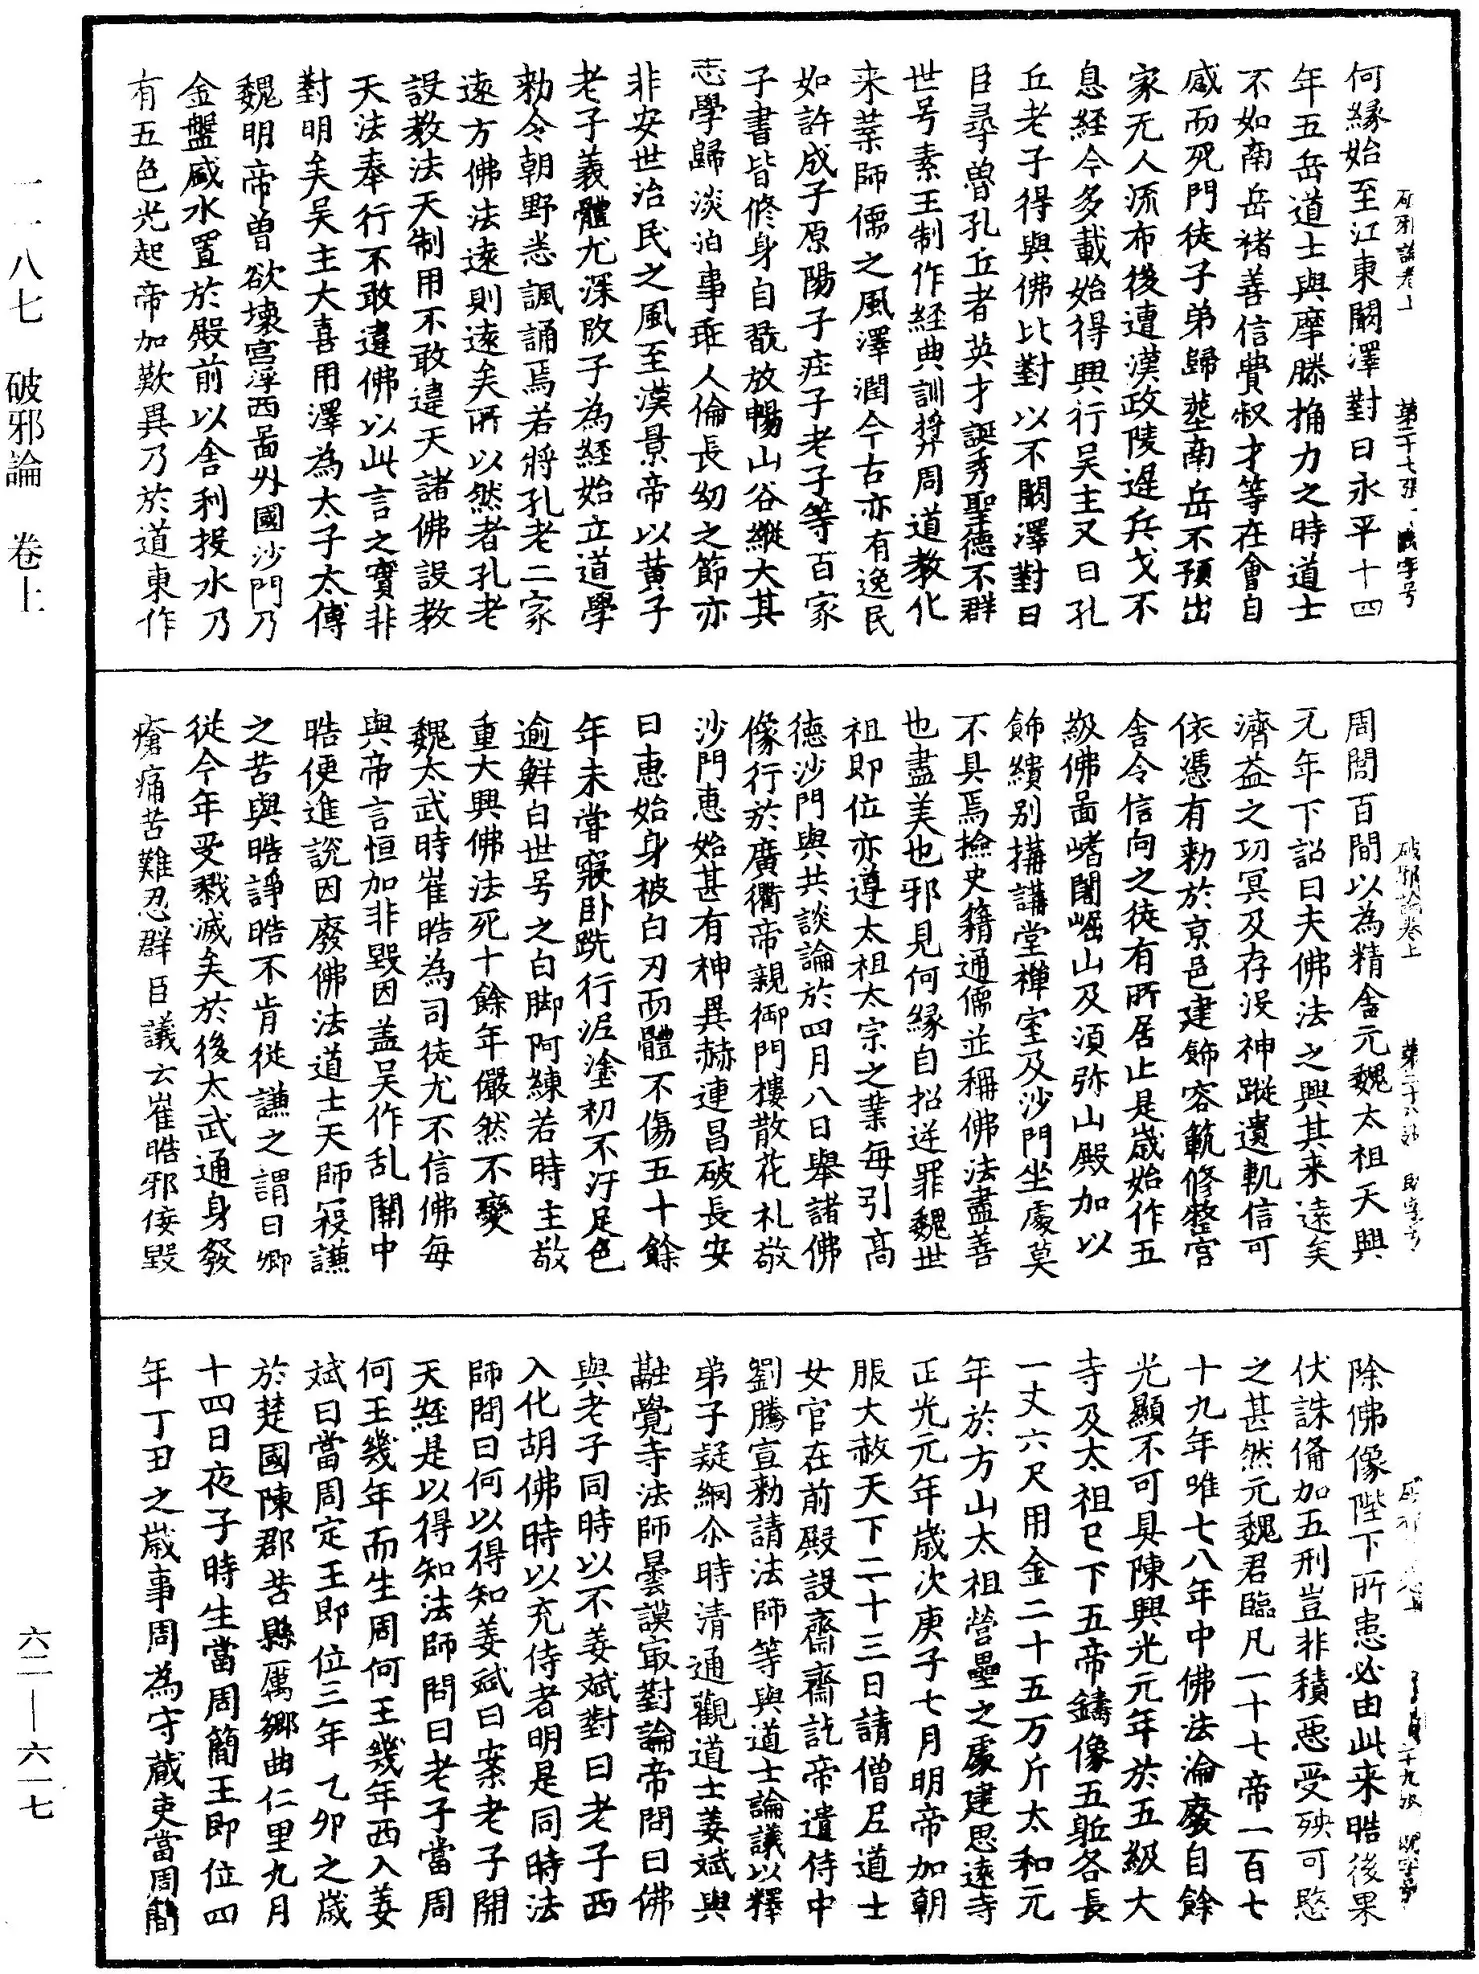 破邪論卷上　第二十七張　字号
何縁始至江東闞澤對曰永平十四
年五岳道士與摩滕捔力之時道士
不如南岳褚善信費叔才等在會自
感而死門徒子弟歸葬南岳不預出
家无人流布後遭漢政陵遲兵戈不
息經今多載始得興行吳主又曰孔
丘老子得與佛比對以不闞澤對曰
臣尋魯孔丘者英才誕秀聖德不群
世号素王制作經典訓奬周道教化
来葉師儒之風澤潤今古亦有逸民
如許成子原陽子庄子老子等百家
子書皆修身自翫放暢山谷縱大其
志學歸淡泊事乖人倫長幼之節亦
非安世治民之風至漢景帝以黃子
老子義體尤深改子為經始立道學
勅令朝野悉諷誦焉若將孔老二家
遠方佛法遠則遠矣所以然者孔老
設教法天制用不敢違天諸佛設教
天法奉行不敢違佛以此言之實非
對明矣吳主大喜用澤為太子太傅
魏明帝曾欲壞宮浮西啚外國沙門乃
金盤盛水置於殿前以舍利投水乃
有五色光起帝加歎異乃於道東作
破邪論卷上　第二十八張
周閭百間以為精舍元魏太祖天興
元年下詔曰夫佛法之興其来遠矣
濟益之功冥及存没神蹤遺軌信可
依憑有勅於京邑建飾容範修整宮
舍令信向之徒有所居止是歲始作五
級佛啚嵴闍崛山及湏弥山殿加以
飾繢别搆講堂禪室及沙門坐處莫
不具焉撿史籍通儒並稱佛法盡善
也盡美也邪見何縁自招逆罪魏世
祖即位亦遵太祖太宗之業毎引高
德沙門與共談論於四月八日舉諸佛
像行於廣衢帝親御門樓散花礼敬
沙門惠始甚有神異赫連昌破長安
曰惠始身被白刃而體不傷五十餘
年未甞寢卧跣行泥塗初不汙足色
逾鮮白世号之白脚阿練若時主敬
重大興佛法死十餘年儼然不變
魏太武時崔晧為司徒尤不信佛毎
與帝言恒加非毀因盖吳作乱關中
晧便進説因廢佛法道士天師寇謙
之苦與晧諍晧不肯從謙之謂曰卿
從今年受戮滅矣於後太武通身發
瘡痛苦難忍群臣議云崔晧邪佞毀
二十九張
除佛像陛下所患必由此来晧後果
伏誅俻加五刑豈非積惡受殃可愍
之甚然元魏君臨凡一十七帝一百七
十九年唯七八年中佛法淪廢自餘
光顯不可具陳興光元年於五級大
寺及太祖已下五帝鑄像五軀各長
一丈六尺用金二十五万斤太和元
年於方山太祖營壘之處建思遠寺
正光元年歲次庚子七月明帝加朝
服大赦天下二十三日請僧尼道士
女官在前殿設齋齋訖帝遺侍中
劉騰宣勅請法師等與道士論議以釋
弟子疑網尒時清通觀道士姜斌與
融覺寺法師曇謨最對論帝問曰佛
與老子同時以不姜斌對曰老子西
入化胡佛時以充侍者明是同時法
師問曰何以得知姜斌曰案老子開
天經是以得知法師問曰老子當周
何王幾年而生周何王幾年西入姜
斌曰當周定王即位三年乙卯之歲
於楚國陳郡苦縣厲郷曲仁里九月
十四日夜子時生當周簡王即位四
年丁丑之歲事周為守藏吏當周簡
一一八七　破邪論　卷上
六二—六一七